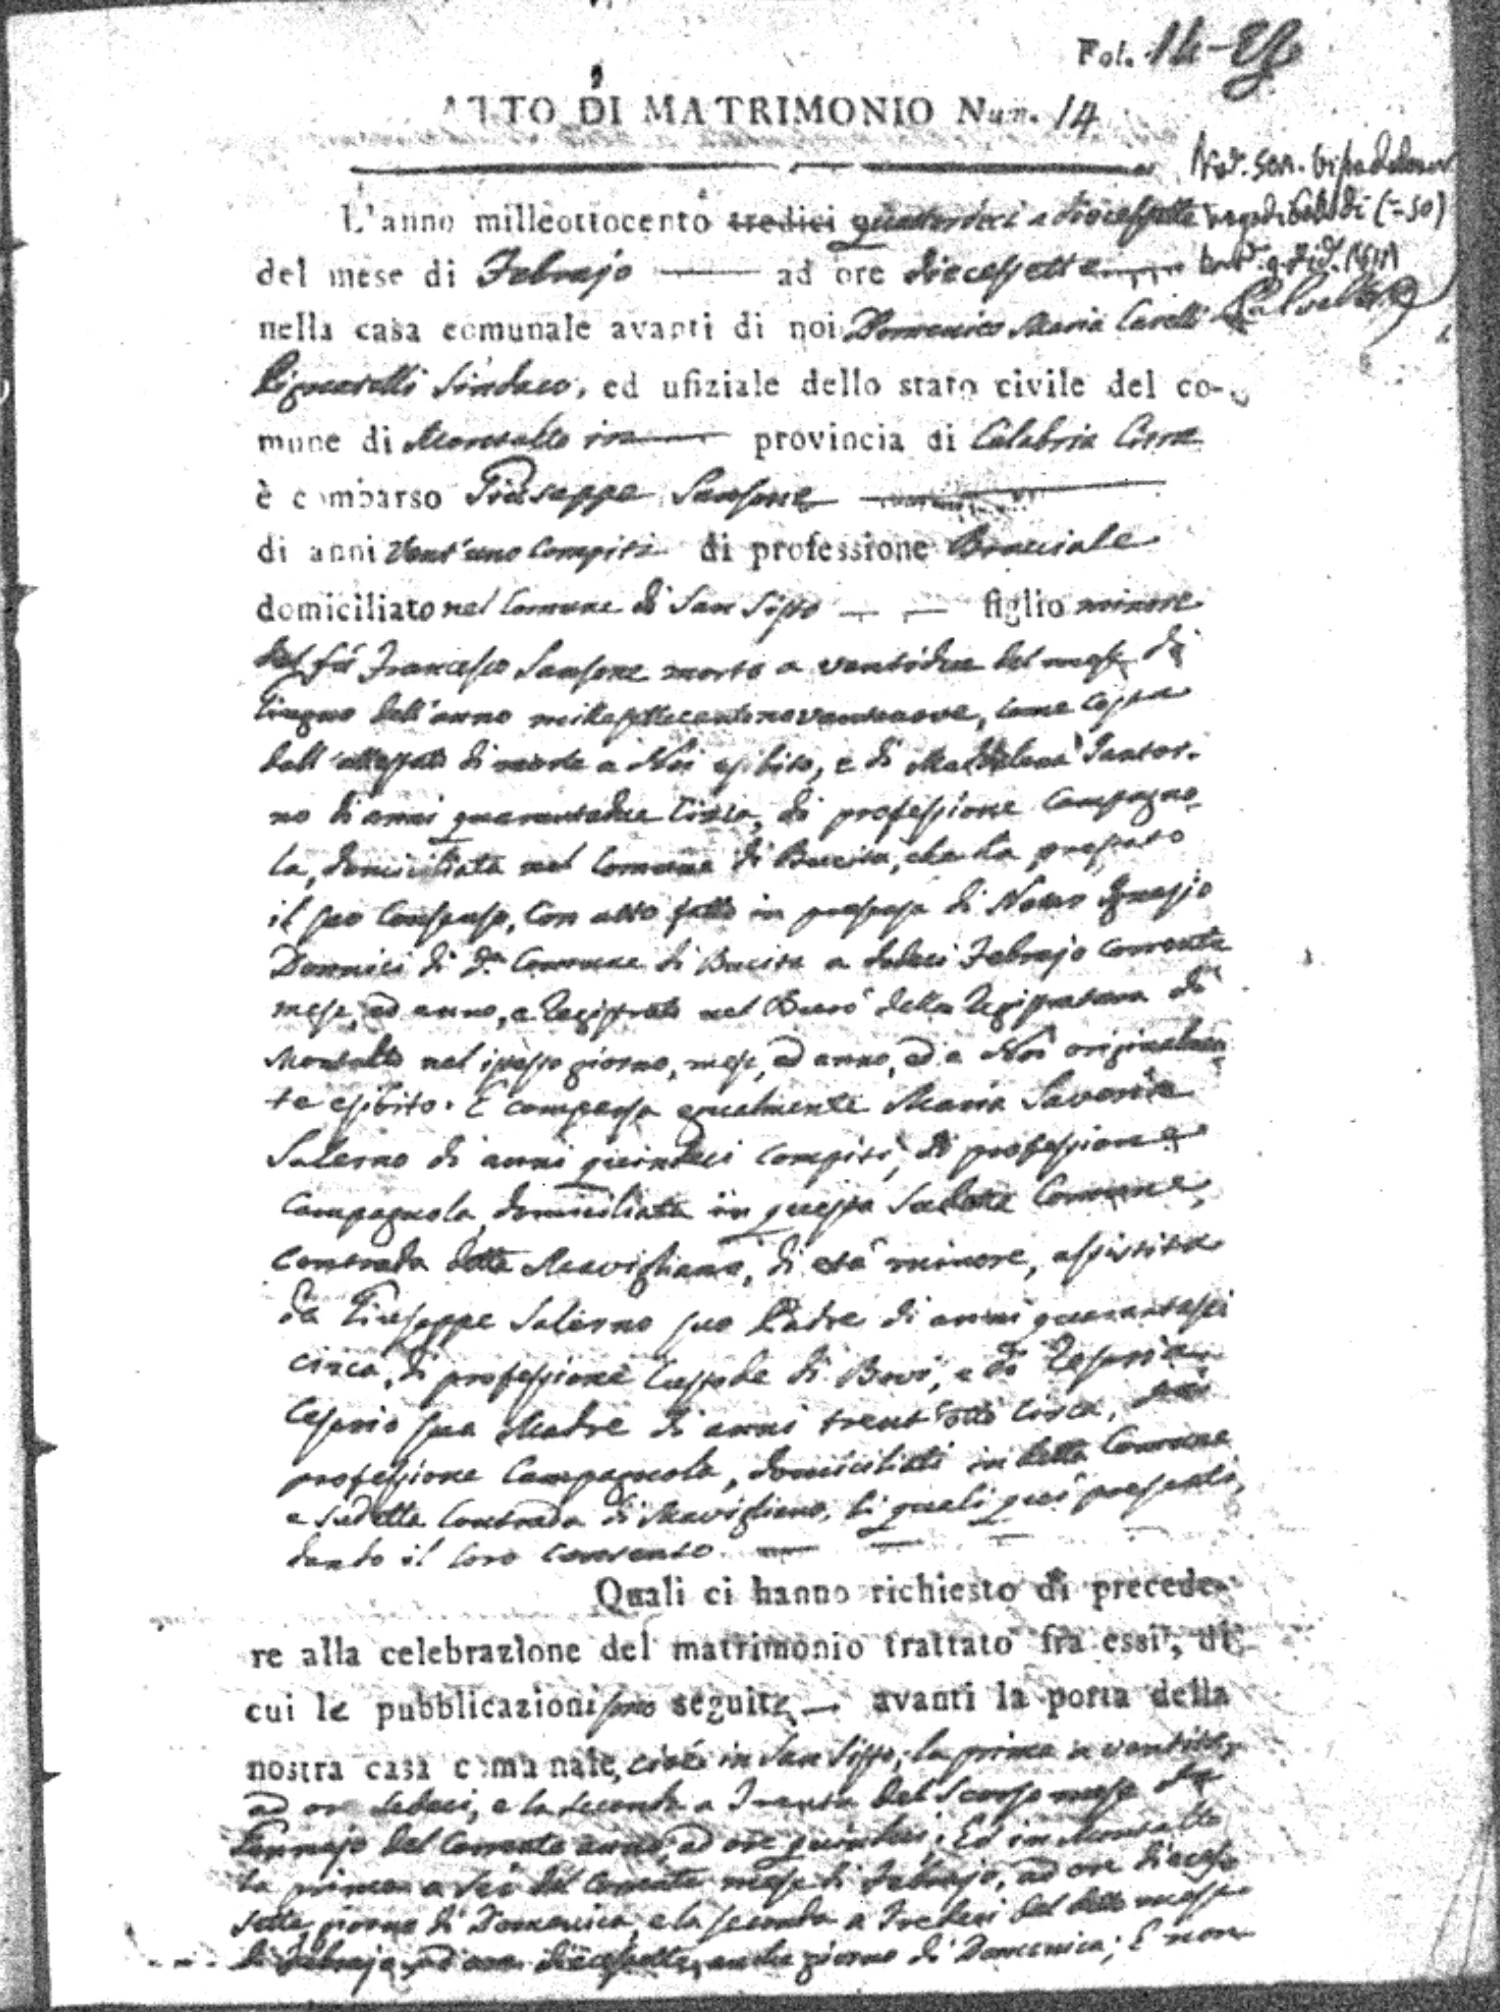 Fol. 14
ATTO DI MATRIMONIO Num. 14
L'anno milleottocento tredici quattordeci a diecessette
del mese di Febrajo ad ore diecessette
nella casa comunale avanti di noi Domenico Maria Carelli
Pignatelli Sindaco, ed ufiziale dello stato civile del co-
mune di Montalto in provincia di Calabria Citra
è comparso Giuseppe Sansone
di anni vent'uno compiti di professione Bracciale
domiciliato nel Comune di San Sisto figlio minore
del fù Francesco Sansone morto a ventidue del mese di
Giugno dell'anno millesettecentonovantanove, come costa
dall'attestato di morte a Noi esibito, e di Maddalena Santor-
no di anni quarantadue circa, di professione Campagno-
la, domiciliata nel Comune di Bucita, che ha prestato
il suo consenso, con atto fatto in presenza di Notar Ignazio
Donnici di d.a Comune di Bucita a dodeci Febrajo corrente
mese, ed anno, e registrato nel Burò della Registratura di
Montalto nel istesso giorno, mese, ed anno, ed a Noi originalmen-
te esibito. È comparsa egualmente Maria Saveria
Salerno di anni quindeci compiti, di professione
Campagnola, domiciliata in questa sudetta Comune,
contrada detta Mavigliano, di età minore, assistita
da Giuseppe Salerno suo Padre di anni quarantasei
circa, di professione Custode di Bovi, e di
sua Madre di anni trent'otto circa, di
professione Campagnola, domiciliati in detta Comune
e sudetta Contrada di Mavigliano, li quali quì presenti,
dando il loro consenso.
Quali ci hanno richiesto di precede-
re alla celebrazione del matrimonio trattato fra essi, di
cui le pubblicazioni sono seguite avanti la porta della
nostra casa comunale, cioè in San Sisto; la prima a ventitre
ad ore sedeci, e la seconda a Trenta del scorso mese di
Gennajo del corrente anno, ad ore quindeci; Ed in Montalto
la prima a sei del corrente mese di Febrajo, ad ore dieces-
sette, giorno di Domenica, e la seconda a Tredeci del detto mese
di Febrajo ad ore diecessette, anche giorno di Domenica; E non